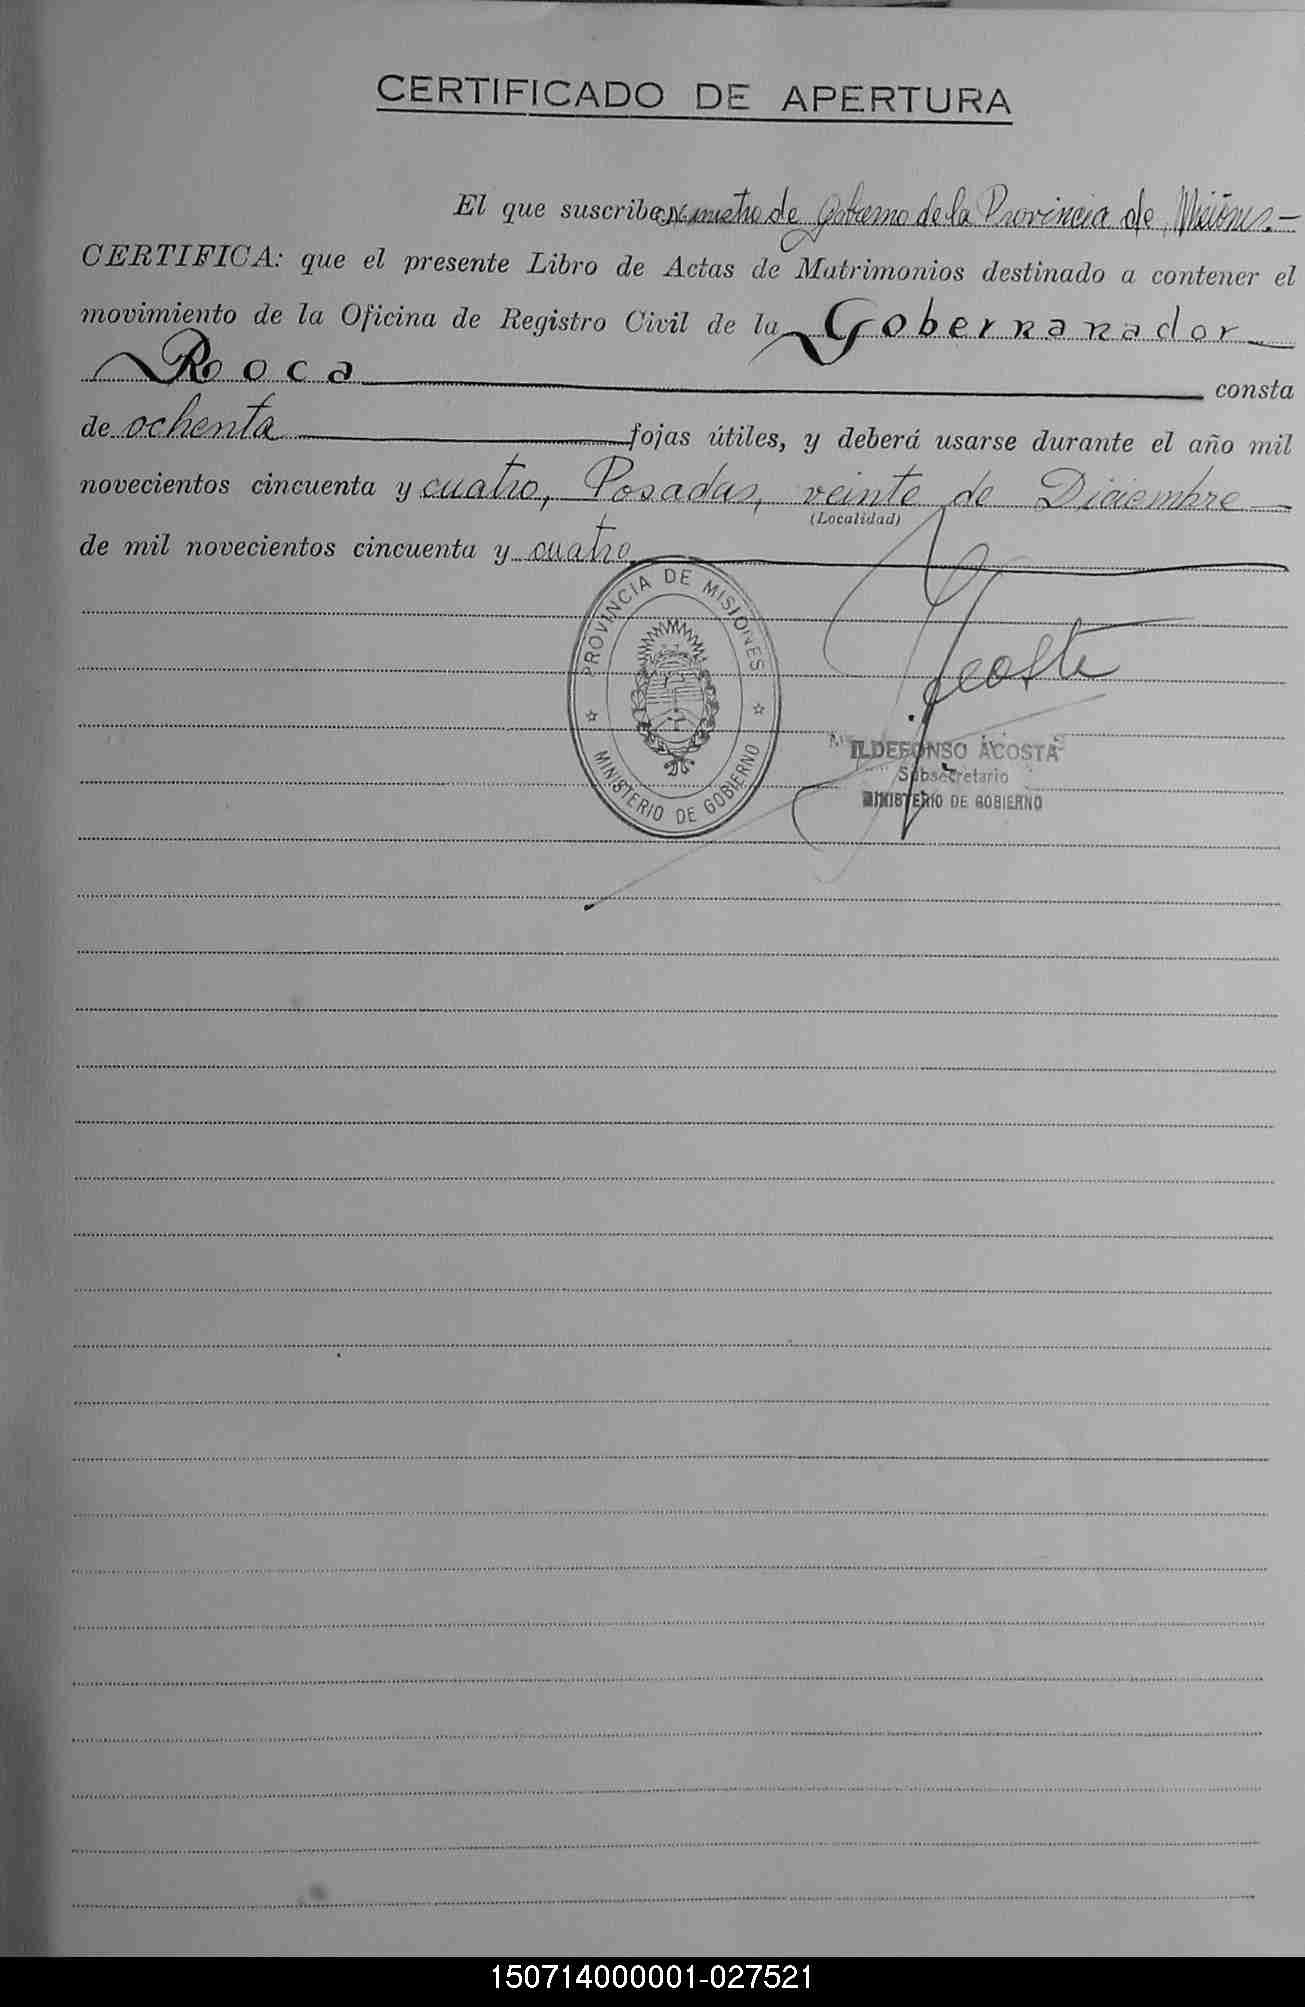 CERTIFICADO DE APERTURA
El que suscribe, Ministro de Gobierno de la Provincia de Misiones.—
CERTIFICA: que el presente Libro de Actas de Matrimonios destinado a contener el
movimiento de la Oficina de Registro Civil de la Gobernanador
Roca consta
de ochenta fojas útiles, y deberá usarse durante el año mil
novecientos cincuenta y cuatro, Posadas, veinte de Diciembre
(Localidad)
de mil novecientos cincuenta y cuatro
PROVINCIA DE MISIONES
MINISTERIO DE GOBIERNO
Acosta
ILDEFONSO ACOSTA
Subsecretario
MINISTERIO DE GOBIERNO
150714000001-027521